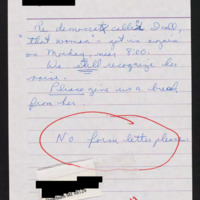 Re democrats called I call,
"that woman" got us again
on Monday, near 8:00.
We still recognize her
voice.
Please give us a break
from her.
No form letter please.